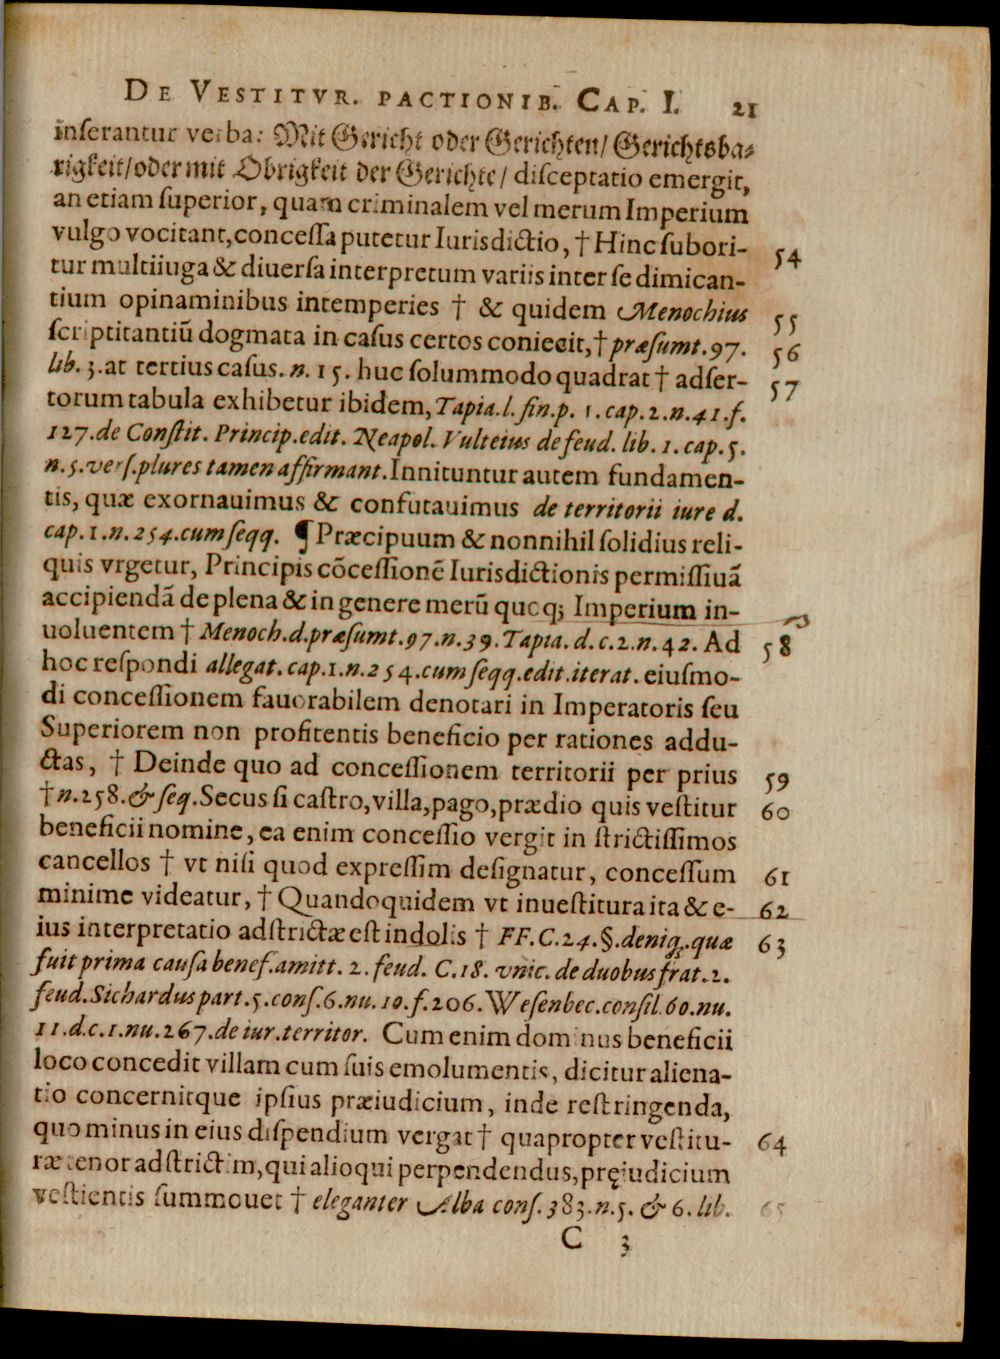 DE VESTITVR. PACTIONIB. CAP. I. 21
inserantur verba: Mit Gericht oder Gerichten/ Gerichtsba⸗
rigkeit/oder mit Obrigkeit der Gerichte/ disceptatio emergit,
an etiam superior, quam criminalem vel merum Imperium
vulgo vocitant, concessa putetur Iurisdictio, † Hinc subori- 54
tur multiiuga & diuersa interpretum variis inter se dimican-
tium opinaminibus intemperies † & quidem Menochius 55
scriptitantiũ dogmata in casus certos coniecit, † præsumt. 97. 56
lib. 3. at tertius casus. n. 15. huc solummodo quadrat † adser- 57
torum tabula exhibetur ibidem, Tapia. l. fin. p. 1. cap. 2. n. 41. f.
127. de Constit. Princip. edit. Neapol. Vulteius de feud. lib. 1. cap. 5.
n. 5. vers. plures tamen affirmant. Innituntur autem fundamen-
tis, quæ exornauimus & confutauimus de territorii iure d.
cap. 1. n. 254. cum seqq. ¶ Præcipuum & nonnihil solidius reli-
quis vrgetur, Principis cõcessionẽ Iurisdictionis permissiuã
accipiendã de plena & in genere merũ quoq; Imperium in-
uoluentem † Menoch. d. præsumt. 97. n. 39. Tapia. d. c. 2. n. 42. Ad 58
hoc respondi allegat. cap. 1. n. 254. cum seqq. edit. iterat. eiusmo-
di concessionem fauorabilem denotari in Imperatoris seu
Superiorem non profitentis beneficio per rationes addu-
ctas, † Deinde quo ad concessionem territorii per prius 59
† n. 258. & seq. Secus si castro, villa, pago, prædio quis vestitur 60
beneficii nomine, ea enim concessio vergit in strictissimos
cancellos † vt nisi quod expressim designatur, concessum 61
minime videatur, † Quandoquidem vt inuestitura ita & e- 62
ius interpretatio adstrictæ est indolis † FF. C. 24. §. deniq. quæ 63
fuit prima causa benef. amitt. 2. feud. C. 18. vnic. de duobus frat. 2.
feud. Sichardus part. 5. cons. 6. nu. 10. f. 206. Wesenbec. consil. 60. nu.
11. d. c. 1. nu. 267. de iur. territor. Cum enim dominus beneficii
loco concedit villam cum suis emolumentis, dicitur aliena-
tio concernitque ipsius præiudicium, inde restringenda,
quo minus in eius dispendium vergat † quapropter vestitu- 64
ræ tenor adstrictim, qui alioqui perpendendus, pręiudicium
vestientis summouet † eleganter Alba cons. 383. n. 5. & 6. lib. 65
C 3